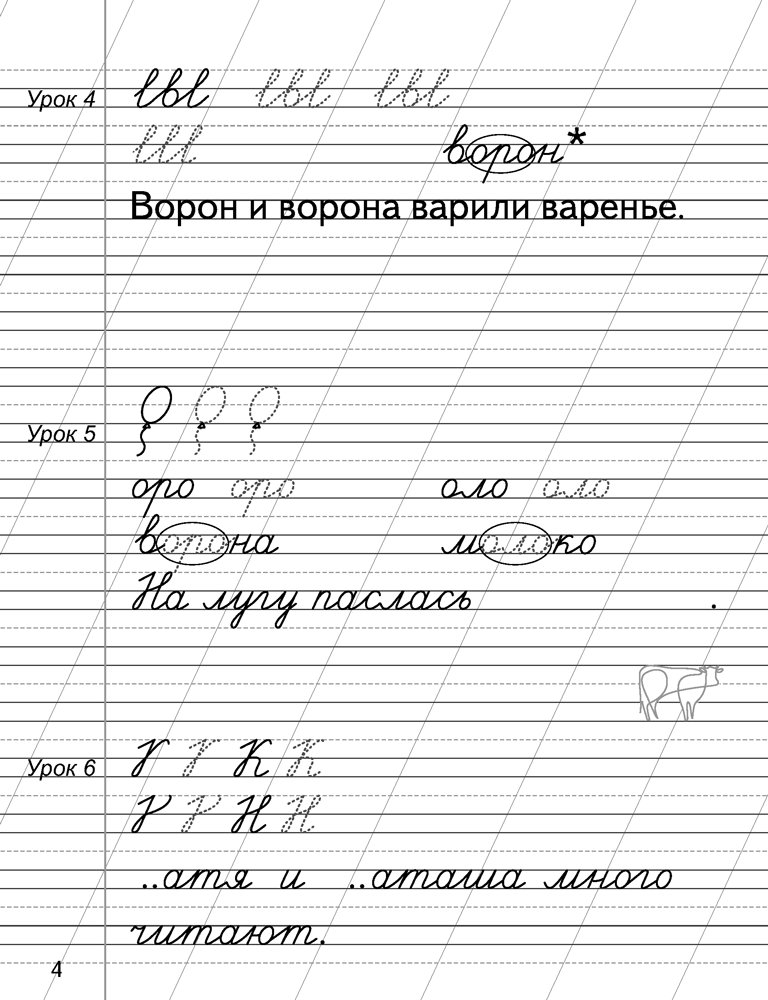 Урок 4 вы вы вы
ш ворон*
Ворон и ворона варили варенье.
Урок 5
оро оро оло оло
ворона молоко
На лугу паслась .
Урок 6 К К
Н Н
..атя и ..аташа много
читают.
4